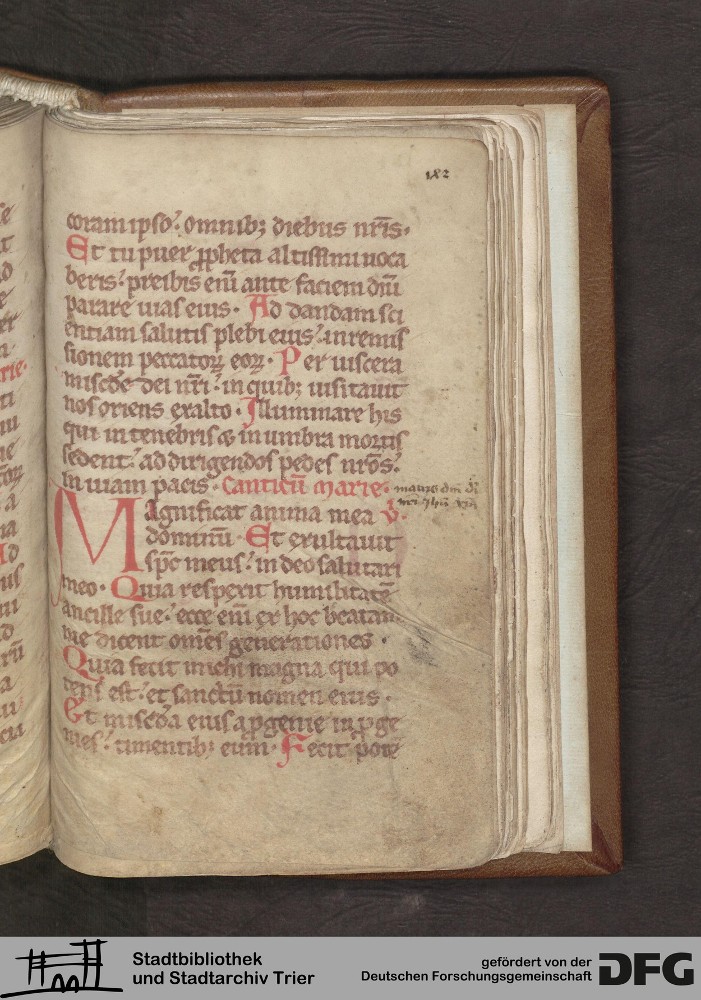 182
coram ipso. omnib; diebus nr̄is.
Et tu puer ꝓpheta altissimi uoca
beris. preibis eni͂ ante faciem dn͂i
parare uias eius. Ad dandam sci
entiam salutis plebi eius. in remis
sionem peccatoꝝ eoꝝ. Per uiscera
miscd̄e dei nr̄i. in quib; uisitauit
nos oriens exalto. Illuminare his
qui in tenebris & in umbra mortis
sedent. ad dirigendos pedes nr̄os.
in uiam pacis. Canticū Marie.
Magnificat anima mea
dominū. Et exultauit
sp̄c meus. in deo salutari
meo. Quia respexit humilitatē
ancille sue. ecce eni͂ ex hoc beatam
me dicent om̄es generationes.
Quia fecit michi magna qui po
tens est. et sanctū nomen eius.
Et miscd̄a eius a ꝓgenie in ꝓge
nies. timentib; eum. Fecit potē
Stadtbibliothek
und Stadtarchiv Trier
gefördert von der
Deutschen Forschungsgemeinschaft
DFG